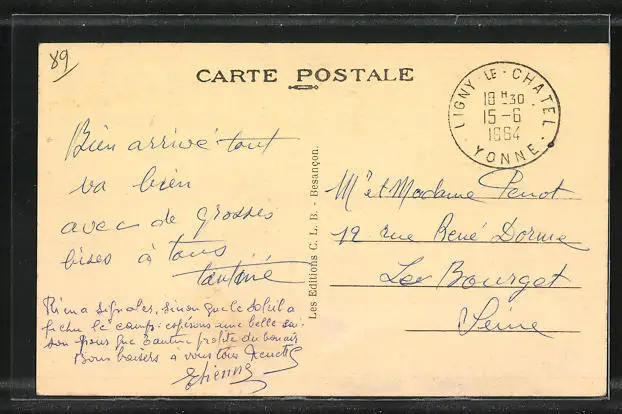 89
CARTE POSTALE
LIGNY-LE-CHATEL
18H30
15-6
1964
YONNE
Bien arrivé tout
va bien
avec de grosses
bises à tous
tantine
Rien a signaler, sinon que le soleil a
fichu le camp. espérons une belle sai-
son pour que Tantine profite du bon air
Bons baisers a vous tous
Etienne
Les Editions C. L. B. - Besançon.
Mr et Madame Penot
12 rue René Dorme
Le Bourget
Seine